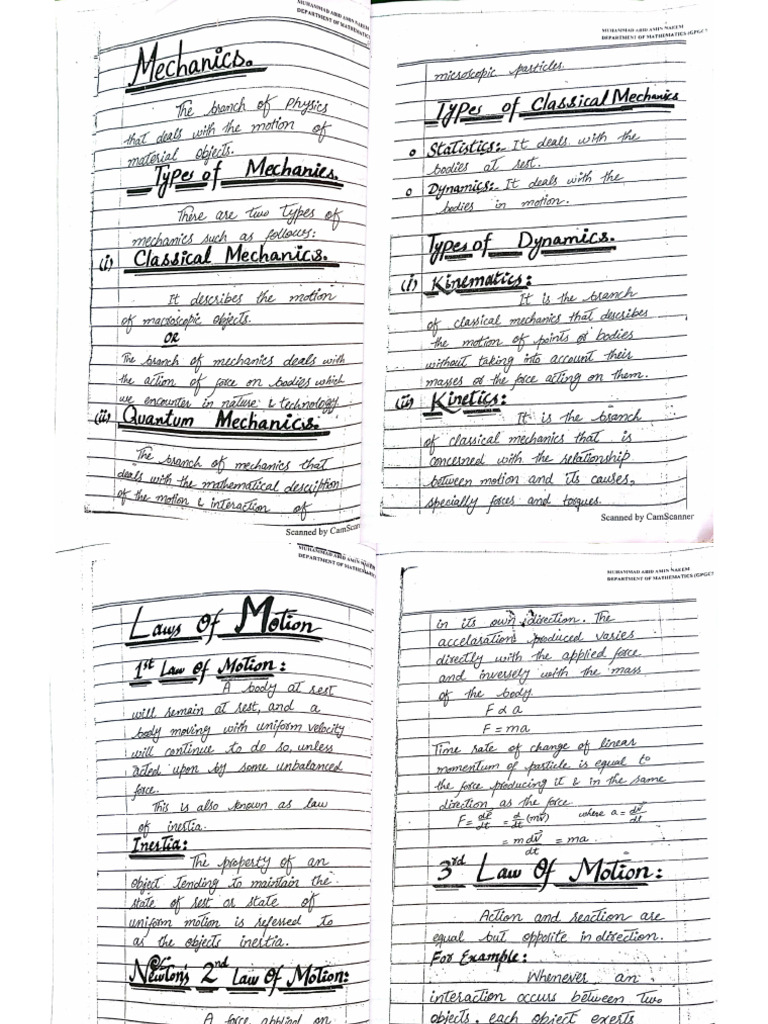 MUHAMMAD ABID AMIN NAEEM
DEPARTMENT OF MATHEMATICS
Mechanics.
The branch of Physics
that deals with the motion of
material objects.
Types of Mechanics.
There are two Types of
mechanics such as follows:
(i) Classical Mechanics.
It describes the motion
of macroscopic objects.
OR
The branch of mechanics deals with
the action of force on bodies which
we encounter in nature & technology.
(ii) Quantum Mechanics.
The branch of mechanics that
deals with the mathematical description
of the motion & interaction of
Scanned by CamScan
MUHAMMAD ABID AMIN NAEEM
DEPARTMENT OF MATHEMATICS (GPGC
microscopic particles.
Types of Classical Mechanics
Statistics:- It deals with the
bodies at rest.
Dynamics:- It deals with the
bodies in motion.
Types of Dynamics.
(i) Kinematics:
It is the branch
of classical mechanics that describes
the motion of points or bodies
without taking into account their
masses or the force acting on them.
(ii) Kinetics:
It is the branch
of classical mechanics that is
concerned with the relationship
between motion and its causes,
specially forces and torques.
Scanned by CamScanner
MUHAMMAD ABID AMIN NAEEM
DEPARTMENT OF MATHEMAT
Laws Of Motion
1st Law Of Motion:
A body at rest
will remain at rest, and a
body moving with uniform velocity
will continue to do so, unless
acted upon by some unbalanced
force.
This is also known as law
of inertia.
Inertia:
The property of an
object tending to maintain the
state of rest or state of
uniform motion is referred to
as the objects inertia.
Newton's 2nd Law Of Motion:
A force applied on
MUHAMMAD ABID AMIN NAEEM
DEPARTMENT OF MATHEMATICS (GPGC
in its own direction. The
accelarations produced varies
directly with the applied force
and inversely with the mass
of the body.
F α a
F = ma
Time rate of change of linear
momentum of particle is equal to
the force producing it & in the same
direction as the force.
F = dP/dt = d/dt (mv) where a = dv/dt
= m dv/dt = ma
3rd Law Of Motion:
Action and reaction are
equal but opposite in direction.
For Example:
Whenever an
interaction occurs between two
objects, each object exerts